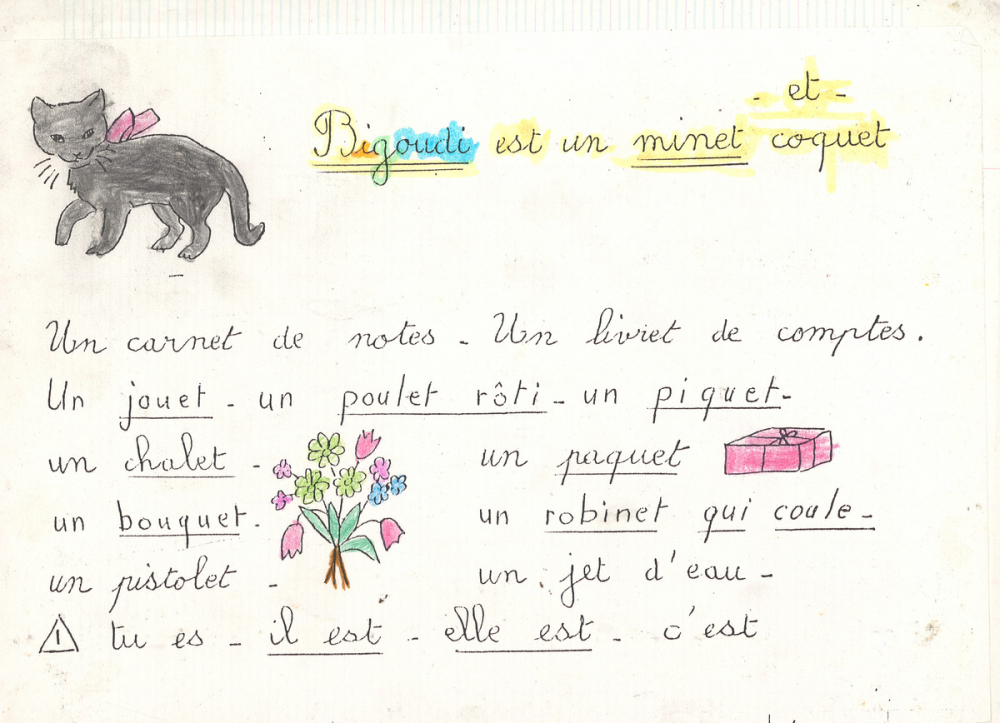 - et -
Bigoudi est un minet coquet
Un carnet de notes - Un livret de comptes.
Un jouet - un poulet rôti - un piquet -
un chalet - un paquet
un bouquet. un robinet qui coule -
un pistolet - un jet d'eau -
! tu es - il est - elle est - c'est